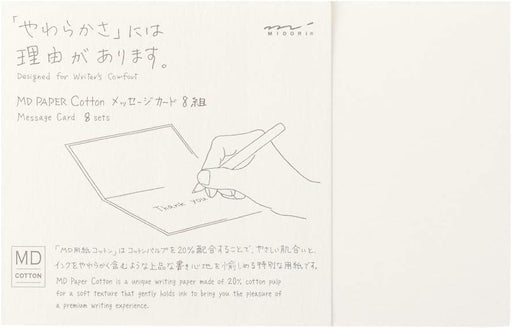 「やわらかさ」には
理由があります。
Designed for Writer's Comfort
MIDORI
MD PAPER Cotton メッセージカード 8組
Message Card 8 sets
Thank you
「MD用紙コットン」はコットンパルプを20%配合することで、やさしい肌合いと、
インクをやわらかく含むような上品な書き心地を愉しめる特別な用紙です。
MD Paper Cotton is a unique writing paper made of 20% cotton pulp
for a soft texture that gently holds ink to bring you the pleasure of
a premium writing experience.
MD
COTTON